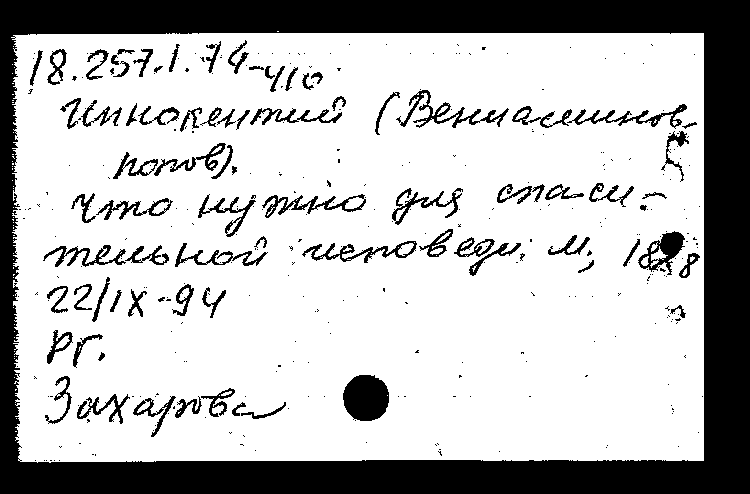 18.257.1.74-410
Иннокентий (Вениаминов-
попов).
Что нужно для спаси-
тельной исповеди. М.,
22/IX-94
РГ.
Захарова